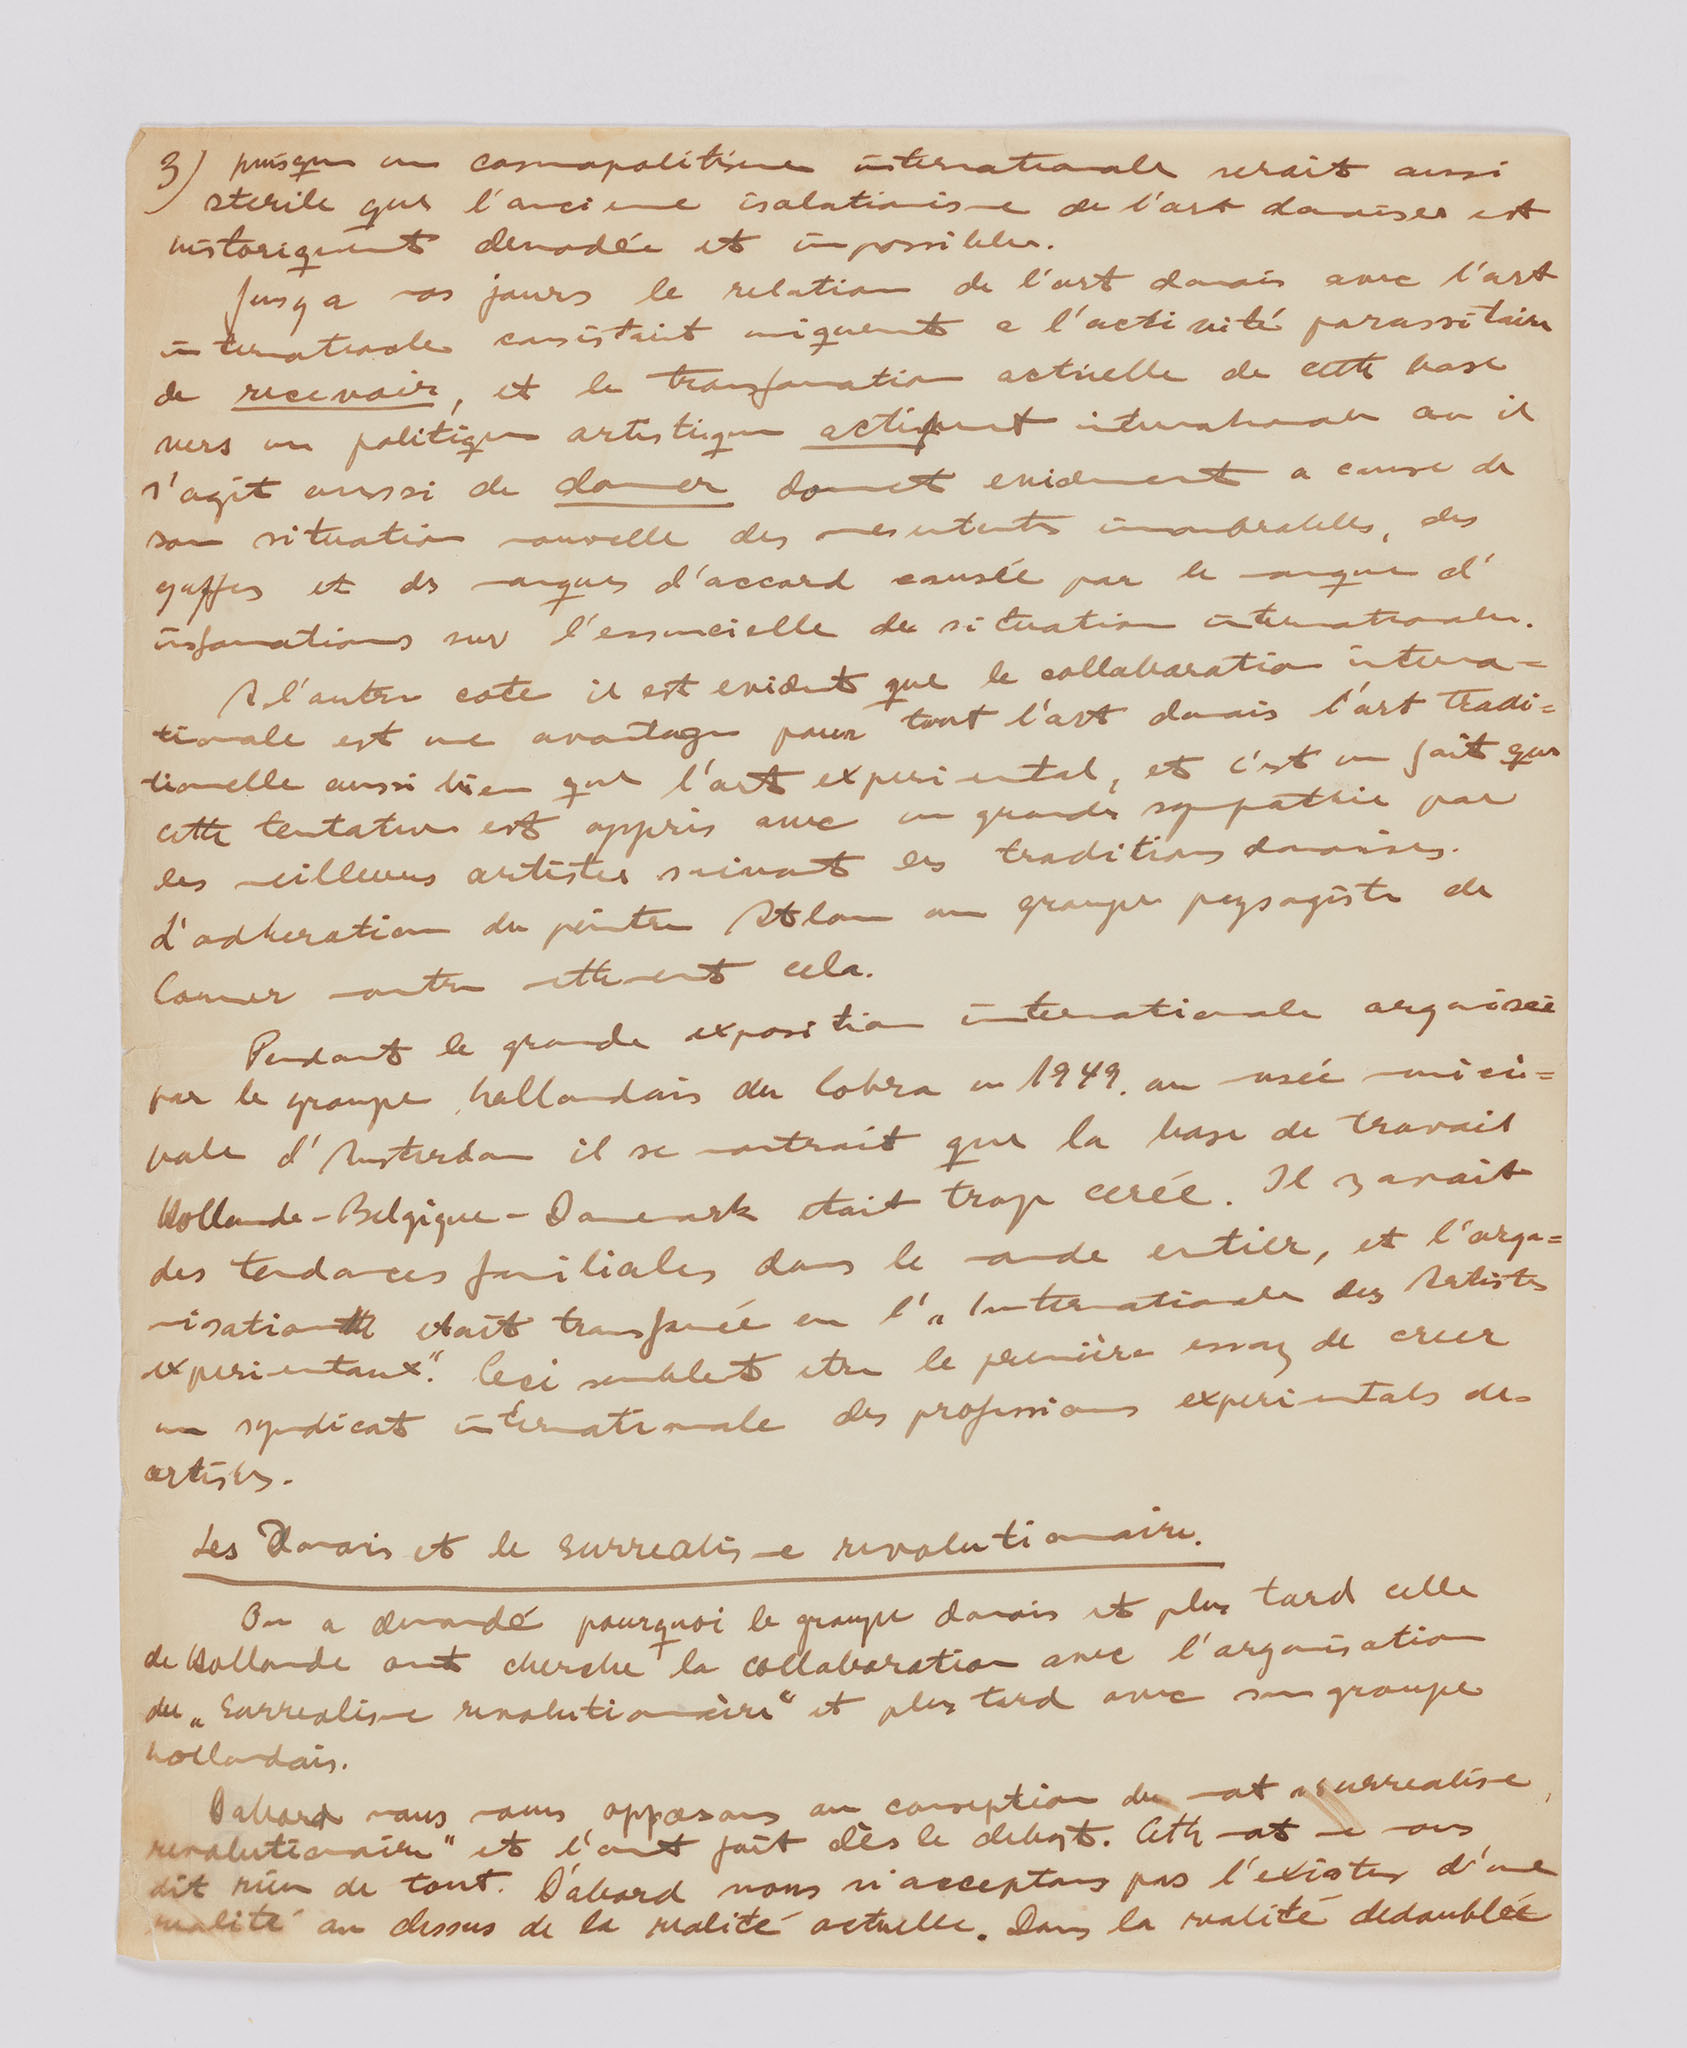 3) puisque un cosmopolitisme internationale serait aussi
sterile que l'ancienne isolationisme de l'art danaises est
historiquement demodée et impossibles.
Jusqa nos jours le relation de l'art danois avec l'art
internationale consistait uniquement a l'activité parassitaire
de recevoir, et le transformation actuelle de cette base
vers un politique artistique activement internationale ou il
s'agit aussi de donner donnet evidement a cause de
son situation nouvelle des mesententes inombrables, des
gaffes et des manques d'accord causée par le manque d'
informations sur l'essencielle de situation internationales.
A l'autre cote il est evident que le collaboration interna=
tionale est une avantage pour tout l'art danois l'art tradi=
tionelle aussi bien que l'art experimental, et c'est un fait que
cette tentative est appris avec un grande sympathie par
les meilleurs artistes suivant les traditions danoises.
L'adheration du peintre Atlan au groupe peysagiste de
Corner montre nettement cela.
Pendant le grande exposition internationale organisée
par le groupe hollandais du Cobra en 1949. au musée munici=
pale d'Amsterdam il se montrait que la base de travail
Hollande-Belgique-Danemark etait trop cerée. Il y avait
des tendances familiales dans le monde entier, et l'orga=
nisation etait transformée en l'„Internationale des Artistes
experimentaux". Ceci semblent etre le première essay de creer
un syndicat internationale des professions experimentals des
artistes.
Les Danois et le surrealisme revolutionaire.
On a demandé pourquoi le groupe danois et plus tard celle
de Hollande ont cherche la collaboration avec l'organisation
du „Surrealisme revolutionnaire" et plus tard avec son groupe
hollandais.
Dabord nous nous opposons au conseption du mot „surrealisme
revolutionaire" et l'ont fait dès le debut. Cette mot ne nous
dit rien de tout. D'abord nous n'acceptons pas l'existes d'une
realité au dessus de la realité actuelle. Dans la realité dedoublée